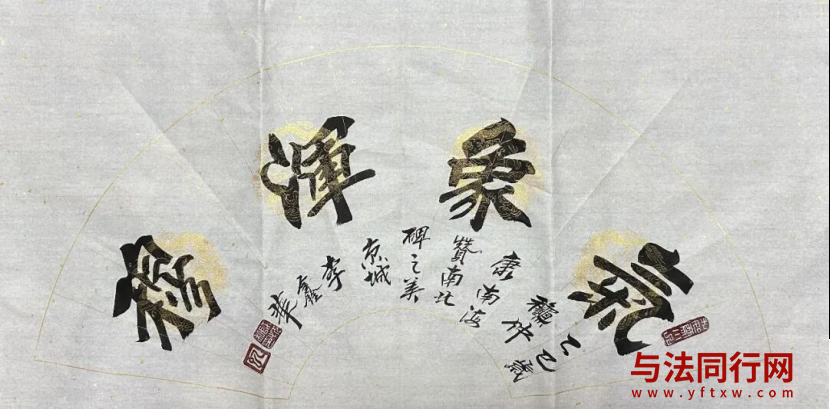 氣象渾穆
乙巳歲
仲
康南海
贊南北
碑之美
京城
李鑫華
与法同行网
www.yftxw.com